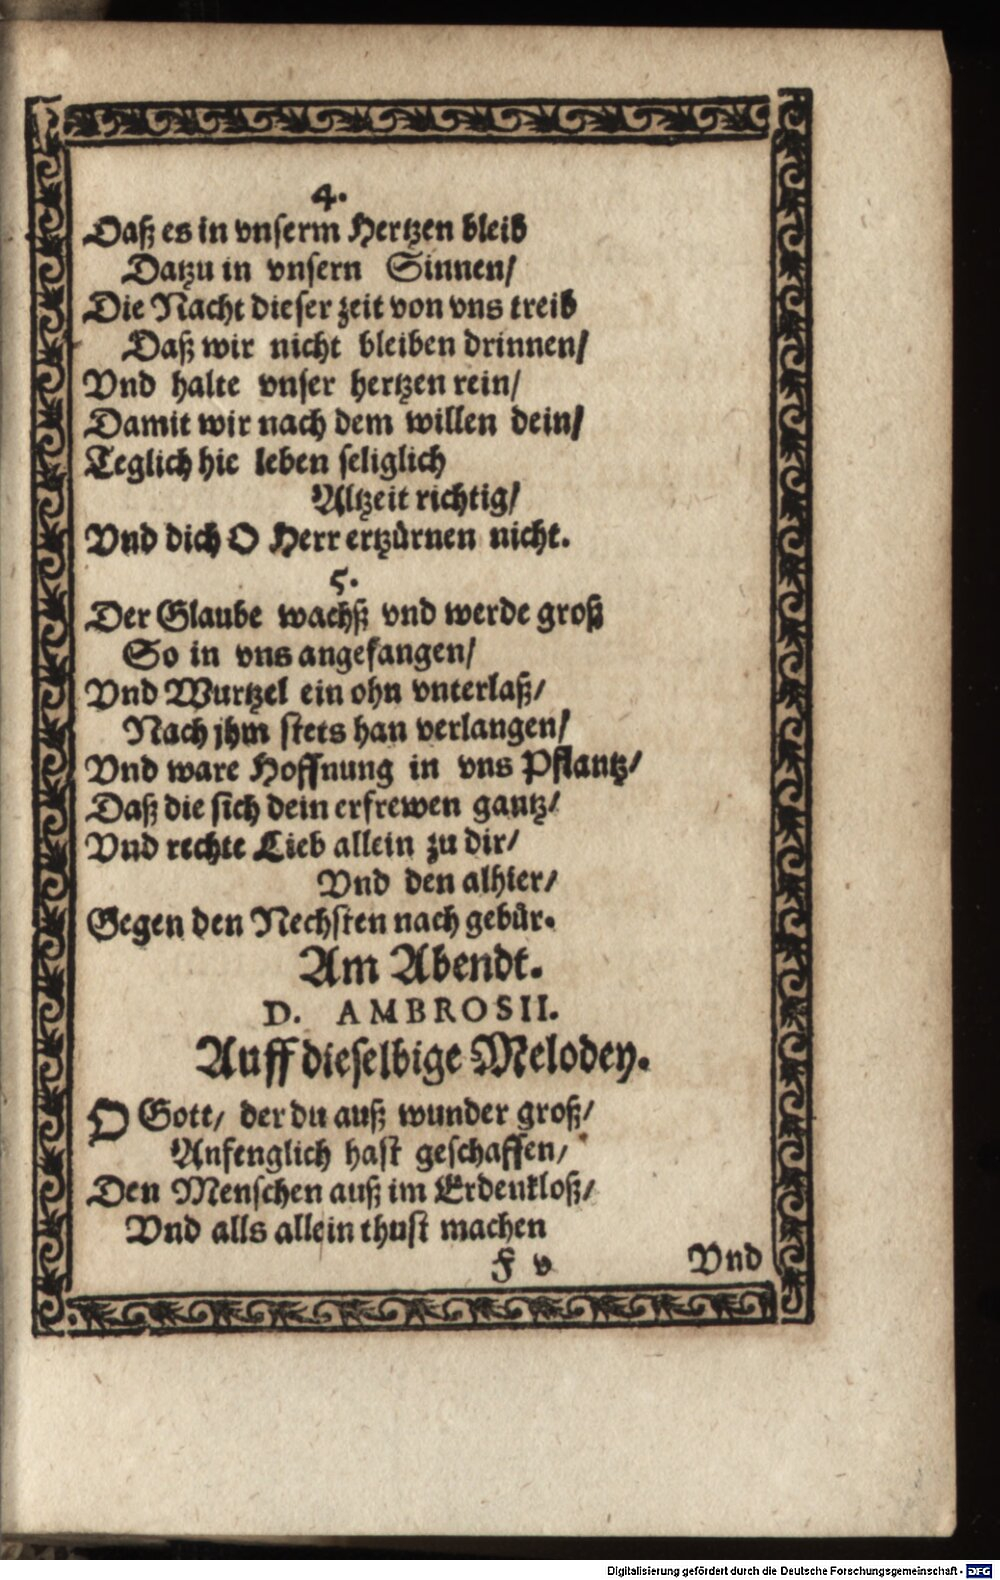 4.
Daß es in vnserm Hertzen bleib
Datzu in vnsern Sinnen/
Die Nacht dieser zeit von vns treib
Daß wir nicht bleiben drinnen/
Vnd halte vnser hertzen rein/
Damit wir nach dem willen dein/
Teglich hie leben seliglich
Altzeit richtig/
Vnd dich O Herr ertzürnen nicht.
5.
Der Glaube wachß vnd werde groß
So in vns angefangen/
Vnd Wurtzel ein ohn vnterlaß/
Nach jhm stets han verlangen/
Vnd ware Hoffnung in vns Pflantz/
Daß die sich dein erfrewen gantz/
Vnd rechte Lieb allein zu dir/
Vnd den alhier/
Gegen den Nechsten nach gebür.
Am Abendt.
D. AMBROSII.
Auff dieselbige Melodey.
O Gott/ der du auß wunder groß/
Anfenglich hast geschaffen/
Den Menschen auß im Erdenkloß/
Vnd alls allein thust machen
F v Vnd
Digitalisierung gefördert durch die Deutsche Forschungsgemeinschaft - DFG